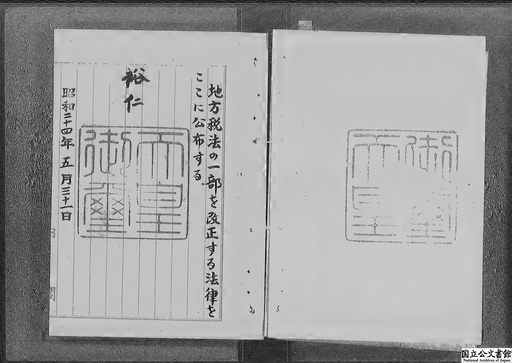 地方税法の一部を改正する法律を
ここに公布する
裕仁
天皇
御璽
昭和二十四年五月三十一日
国立公文書館
National Archives of Japan